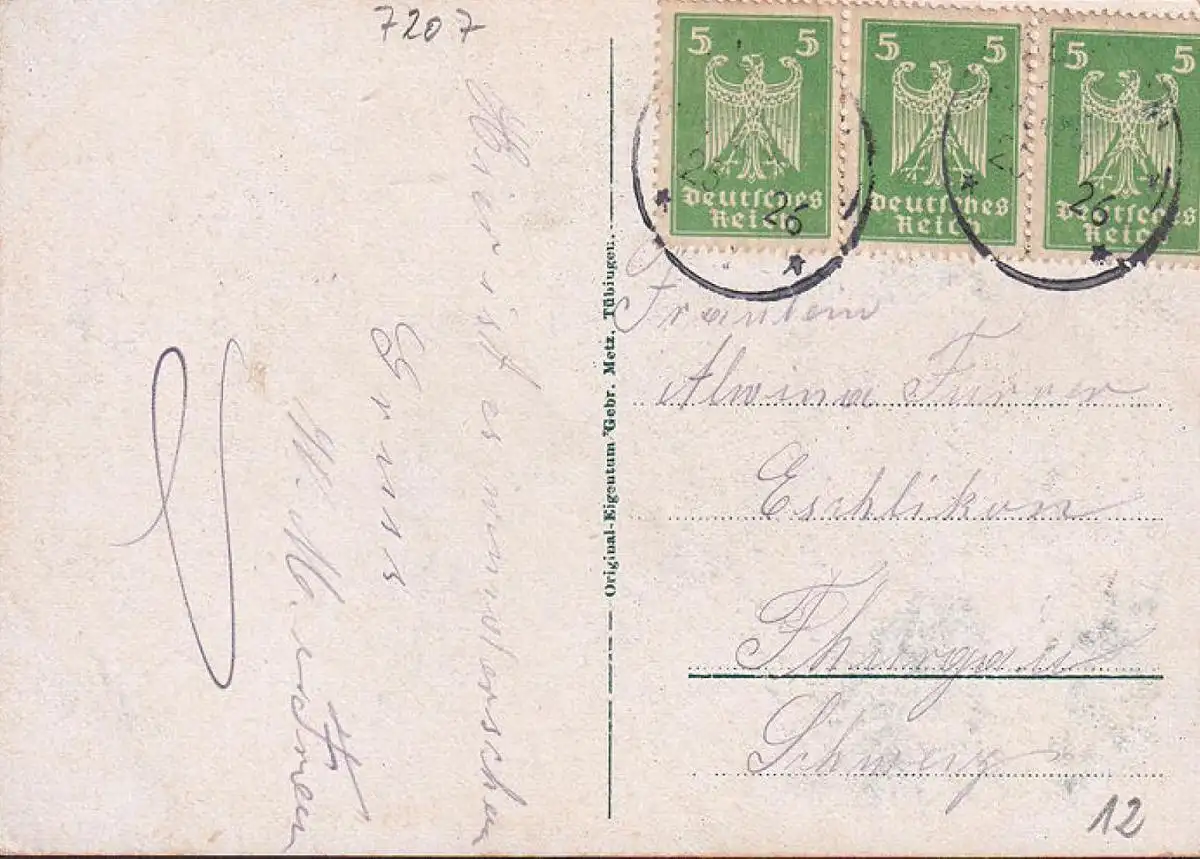 7207
5 5
Deutsches
Reich
5 5
Deutsches
Reich
5 5
Deutsches
Reich
26
26
Hier ist es wunderschön
Gruss
Original-Eigentum Gebr. Metz, Tübingen.
Fräulein
Alwina Furrer
Eschlikon
Thurgau
Schweiz
12